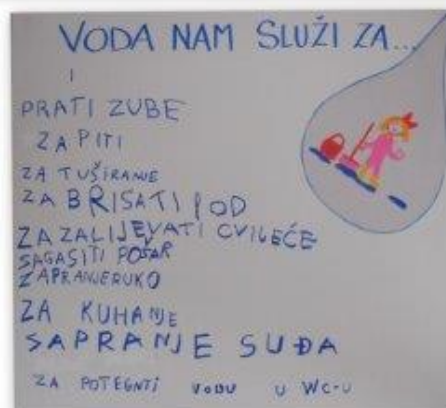 VODA NAM SLUŽI ZA...
I
PRATI ZUBE
ZA PITI
ZA TUŠIRANJE
ZA BRISATI POD
ZA ZALIJEVATI CVIJEĆE
SAGASITI POŽAR
ZAPRANJERUKO
ZA KUHANJE
SAPRANJE SUĐA
ZA POTEGNTI VODU U WC-U